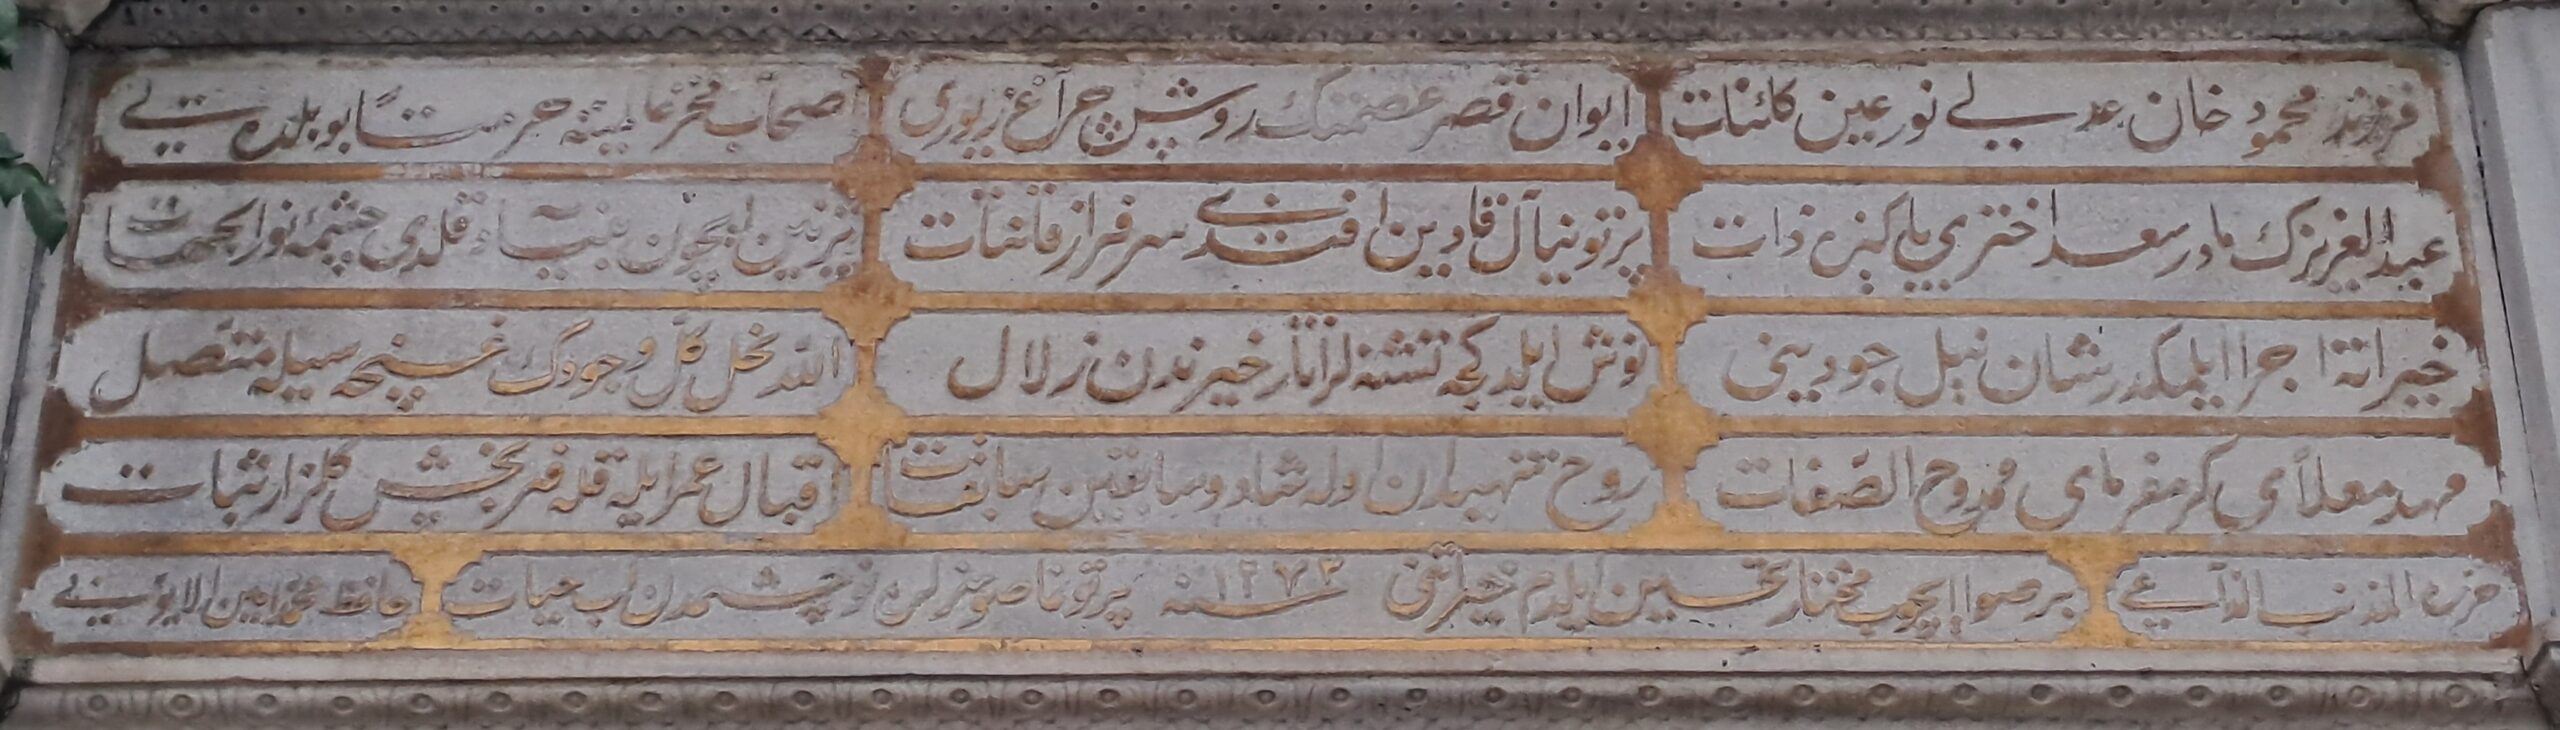 فرزند محمود خان عدلی نور عین کائنات
ایوان قصر عصمتك روشن چراغ زیوری
اصحاب فخر عالمینه حرمتا بو بلده تی
عبدالعزیزك مادر سعد اختری پاکیزه ذات
پرتونیال قادین افندی سرفراز قانتات
تزیین ایچون بنیاد قلدی چشمهٔ نور الجهات
خیراته اجرا ایلمکدر شان نیل جودینی
نوش ایلدکجه تشنه لر آثار خیرندن زلال
الله نخل كل وجودك غنچه سیله متصل
مهد معلای کرمفرمای ممدوح الصفات
روح شهیدان اوله شاد و سابقین سابقات
اقبال عمر ایله قله فر بخش کلزار ثبات
حرره المذنب الداعی
بر صو ایچوب مختار تحسین ایلدم خیراتنی سنه ١٢٧٣ پرتونا صو منزلن نو چشمه دن لب حیات
حافظ محمد امین الایوبی